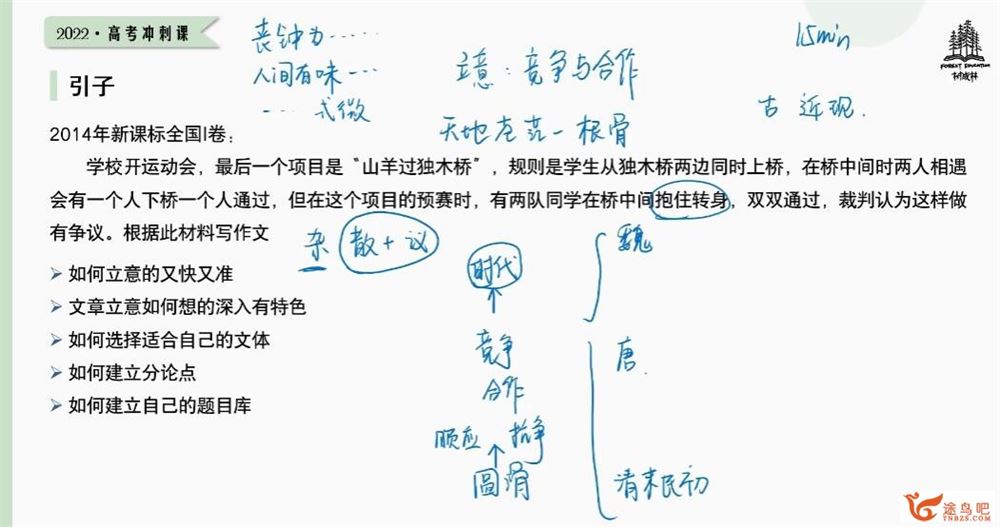 2022·高考冲刺课
丧钟为……
人间有味…
…式微
立意：竞争与合作
天地苍茫一根骨
15min
古 近现.
FOREST EDUCATION
树成林
引子
2014年新课标全国I卷：
学校开运动会，最后一个项目是“山羊过独木桥”，规则是学生从独木桥两边同时上桥，在桥中间时两人相遇
会有一个人下桥一个人通过，但在这个项目的预赛时，有两队同学在桥中间抱住转身，双双通过，裁判认为这样做
有争议。根据此材料写作文
杂 散+议
如何立意的又快又准
文章立意如何想的深入有特色
如何选择适合自己的文体
如何建立分论点
如何建立自己的题目库
时代
竞争
合作
顺应 抗争
圆滑
魏
唐.
清末民初
途鸟吧
TNBZS.COM